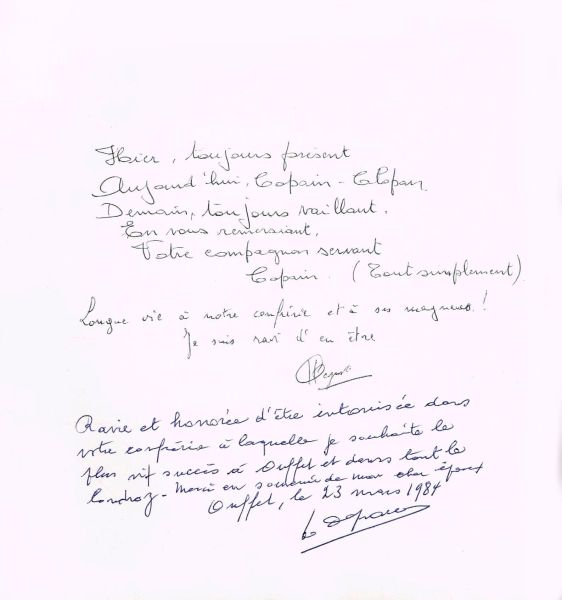 Hier, toujours présent
Aujourd'hui, Copain - Clopan
Demain, toujours vaillant.
En vous remerciant,
Votre compagnon servant
Copain. (Tout simplement)
Longue vie à notre confrérie et à ses !
Je suis ravi d'en être
Ravie et honorée d'être intronisée dans
votre confrérie à laquelle je souhaite le
plus vif succès à Ouffet et dans tout le
Condroz - Merci en souvenir de mon cher époux
Ouffet, le 23 mars 1984